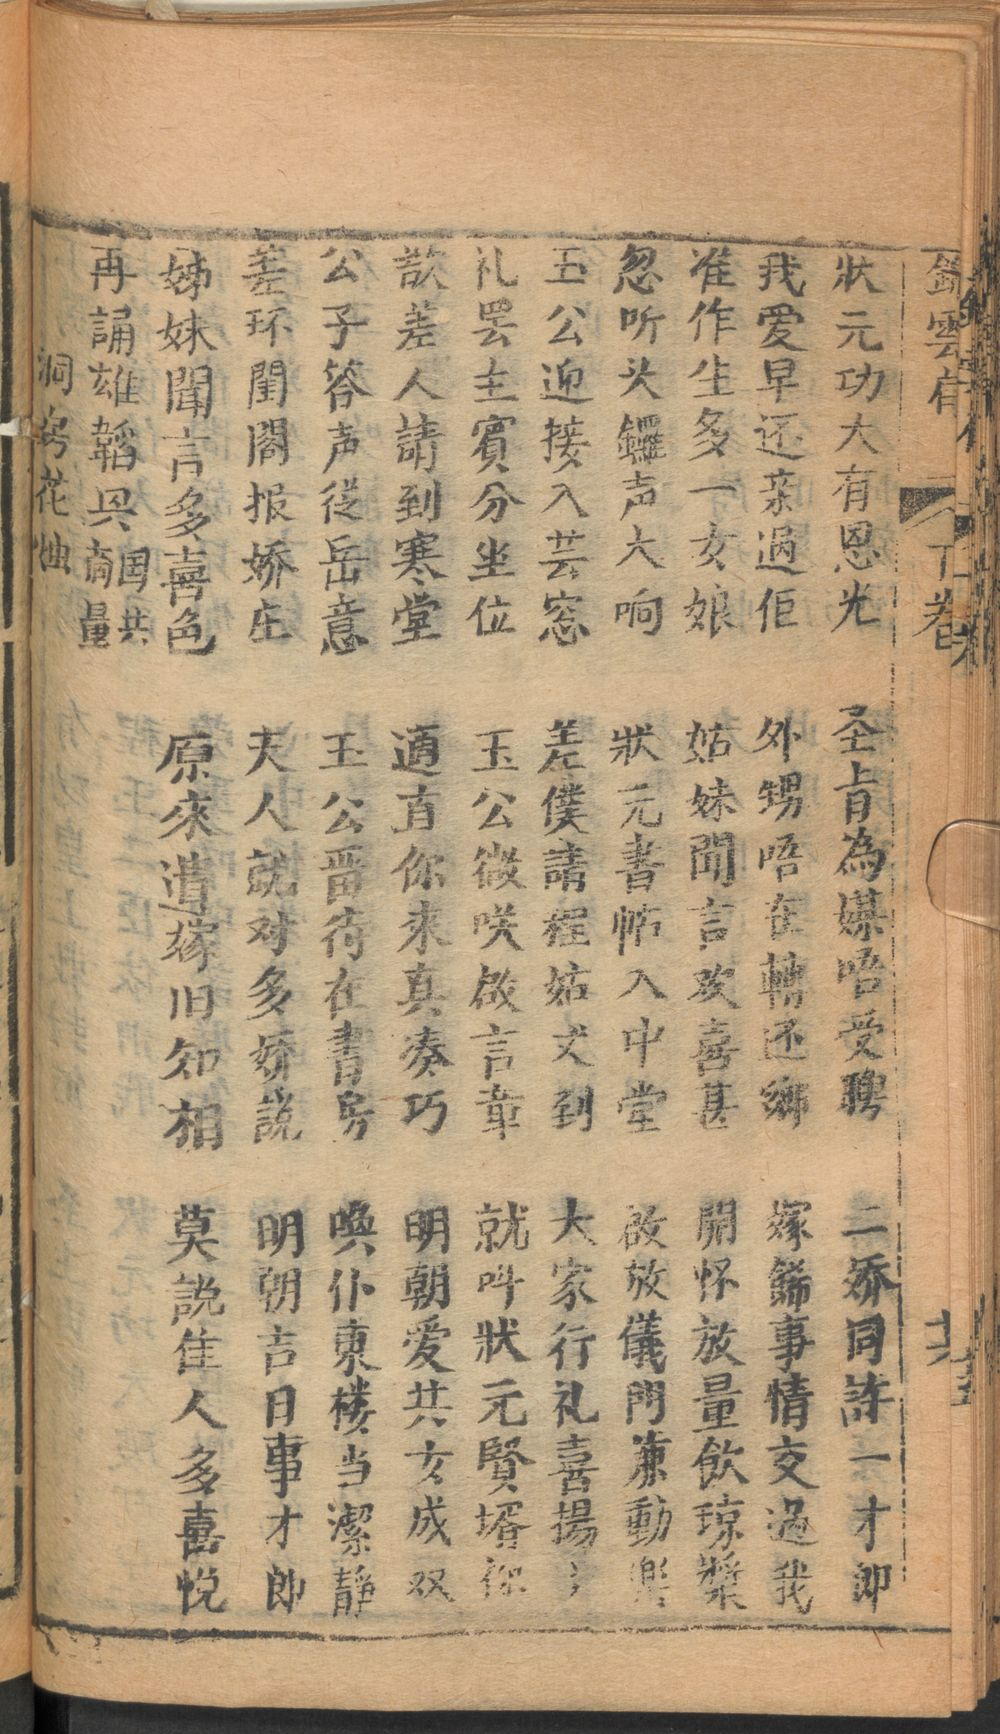 雲 下卷
狀元功大有恩光 圣旨為媒唔受聘 二娇同許一才郎
我爱早还亲過佢 外甥唔在轉还鄉 嫁餙事情交過我
准作生多一女娘 姑妹聞言欢喜甚 開怀放量飲琼漿
忽听头鑼声大响 狀元書帖入中堂 啟放儀門兼動樂
玉公迎接入芸窓 差僕請程姑丈到 大家行礼喜揚〻
礼罢主賓分坐位 玉公微咲啟言章 就呌狀元賢壻你
歆差人請到寒堂 適直你来真奏巧 明朝爱共女成双
公子答声從岳意 玉公畱待在書房 喚仆東楼当潔静
差环閨閣报娇庄 夫人就对多娇說 明朝吉日事才郎
姊妹聞言多喜色 原來遣嫁旧知相 莫說隹人多喜悦
再誦雄韜與国共商量
洞房花烛